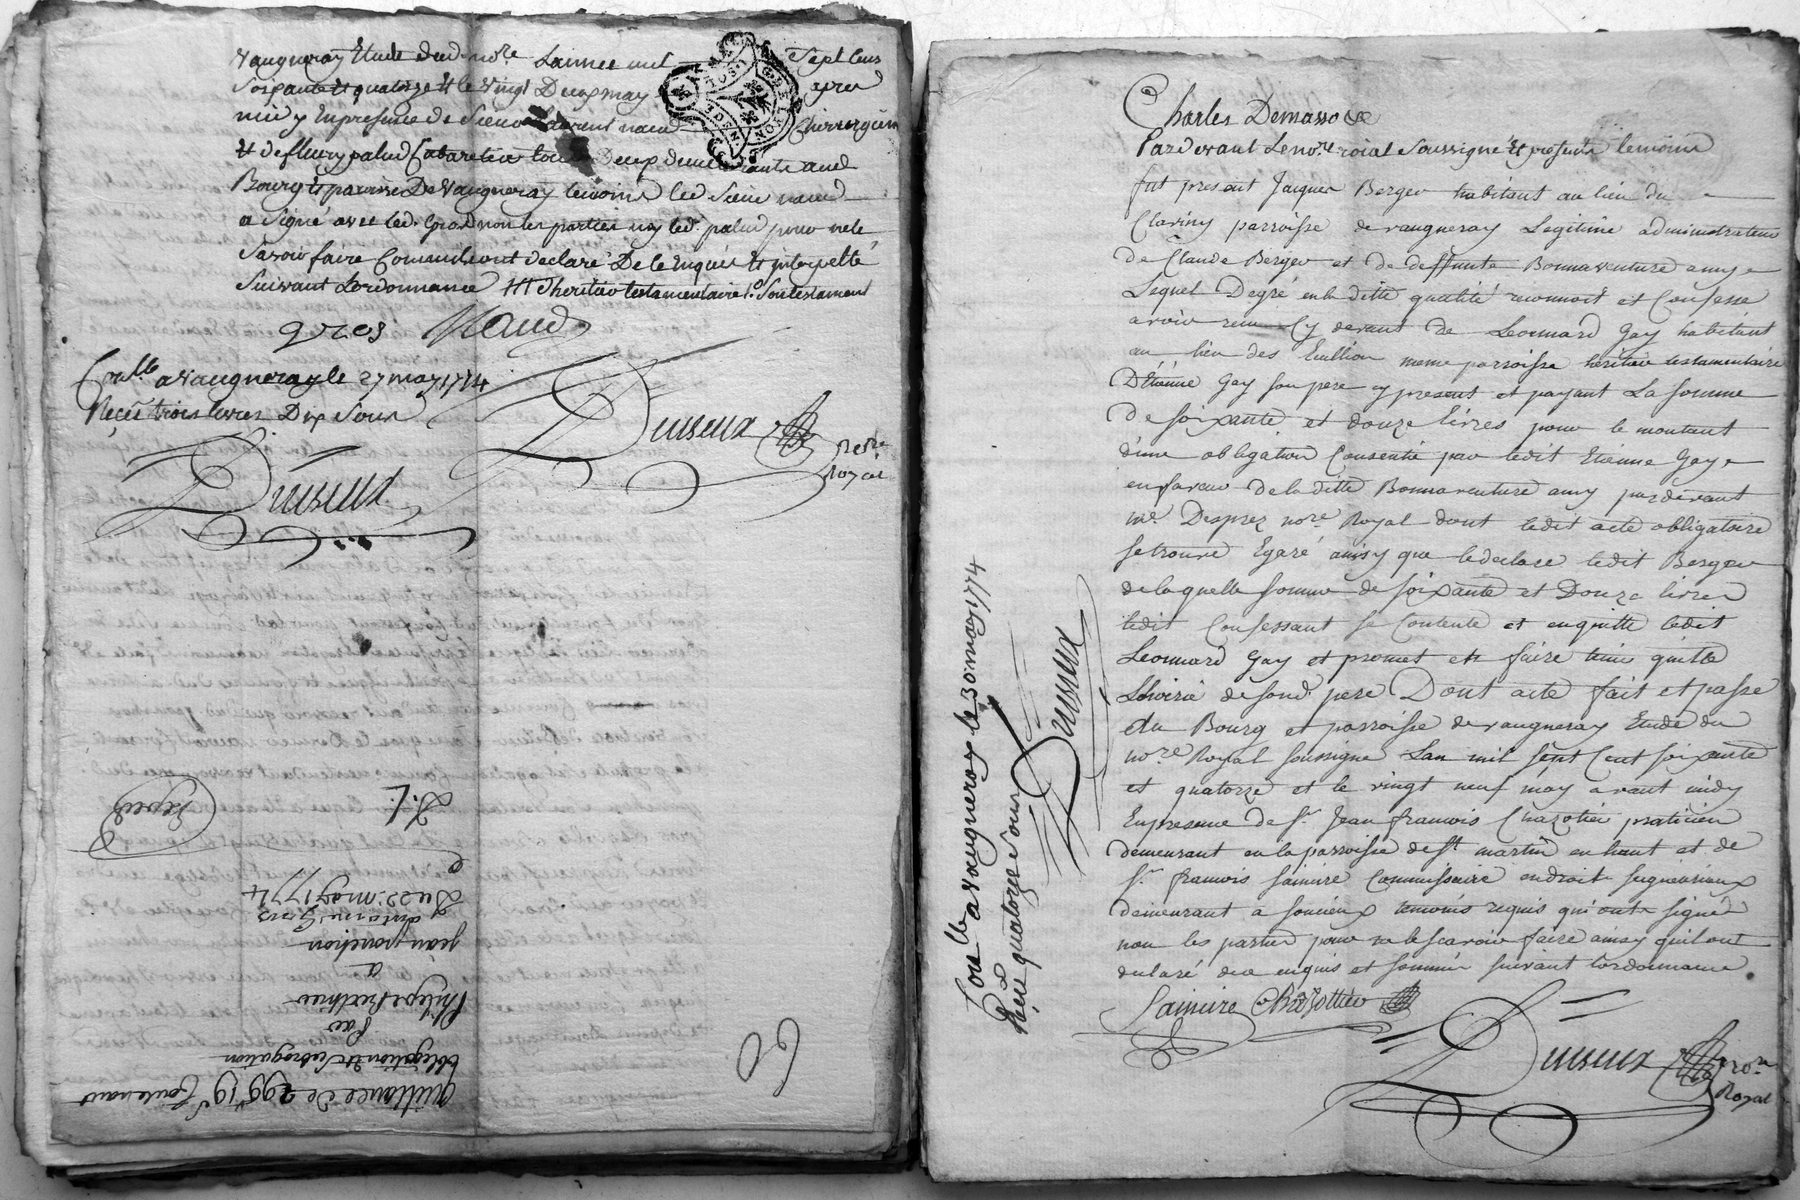 vaugneray Etude dud. no.re Lannee mil Sept Cens
Soixante et quatorze et le vingt Deux may apres
midy En presence de Sieur Laurent naud Chirurgien
et de fleury palud Cabaretier tous Deux demeurants aud.
Bourg et paroisse De Vaugneray temoins led. Sieur naud
a Signé avec led. gros non les parties ny led. palud pour ne le
Savoir faire Comme ils ont declaré De ce Enquis et interpellé
Suivant Lordonnance et heritier testamentaire Son testament
gros Naud
Con.llé a Vaugneray le 27 may 1774
Reçû trois livres Dix Sous
Duisieux
Duisieux No.re Royal
60
Quittance de 299# 19s Contenant
obligation et Subrogation
Par
Philipe
a
jean ponchon
antoine gros
Du 22: may 1774
Exped
Charles Demasso
Pardevant Le no.re roial Soussigné et presents temoins
fut present Jacques Berger habitant au lieu du
Claviny parroisse de vaugneray Legitime administrateur
de Claude Berger et de deffunte Bonnaventure amy
Lequel Degré en la ditte qualité reconnoit et Confesse
avoir recu Cy devant de Leonnard Gay habitant
au lieu des meme parroisse heritier testamentaire
D'Etienne Gay son pere cy present et payant La somme
de soixante et douze livres pour le montant
d'une obligation Consentie par ledit Etienne Gay
en faveur de la ditte Bonnaventure amy pardevant
me. Desprez no.re Royal dont ledit acte obligatoire
se trouve Egaré ainsy que le declare ledit Berger
de laquelle somme de soixante et Douze livres
ledit Confessant se Contente et en quitte ledit
Leonnard Gay et promet et faire tenir quitte
Lhoirie de son d. pere Dont acte fait et passé
au Bourg et parroisse de vaugneray Etude du
no.re Royal soussigné Lan mil sept Cent soixante
et quatorze et le vingt neuf may avant midy
En presence de Sr. Jean francois Chazotier praticien
demeurant en la parroisse de St. martin en haut et de
Sr. francois Saimire Commissaire en droit seigneuriaux
demeurant a soucieux temoins requis qui ont signé
non les parties pour ne le scavoir faire ainsy quil ont
declaré de ce enquis et sommés suivant Lordonnance
Saimire Chazottier
Duisieux no.re Royal
Con.llé a vaugneray le 30 may 1774
Reçû quatorze Sous
Duisieux